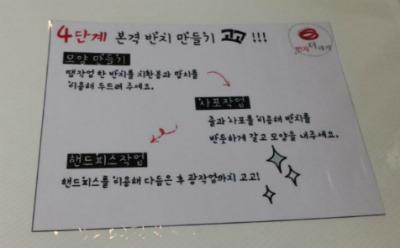 4단계 본격 반지 만들기 고고!!!
모양 만들기
땜작업 한 반지를 지환봉과 망치를
이용해 두드려 주세요.
사포작업
줄과 사포를 이용해 반지를
반듯하게 갈고 모양을 내주세요.
핸드피스작업
핸드피스를 이용해 다듬은 후 광작업까지 고고!